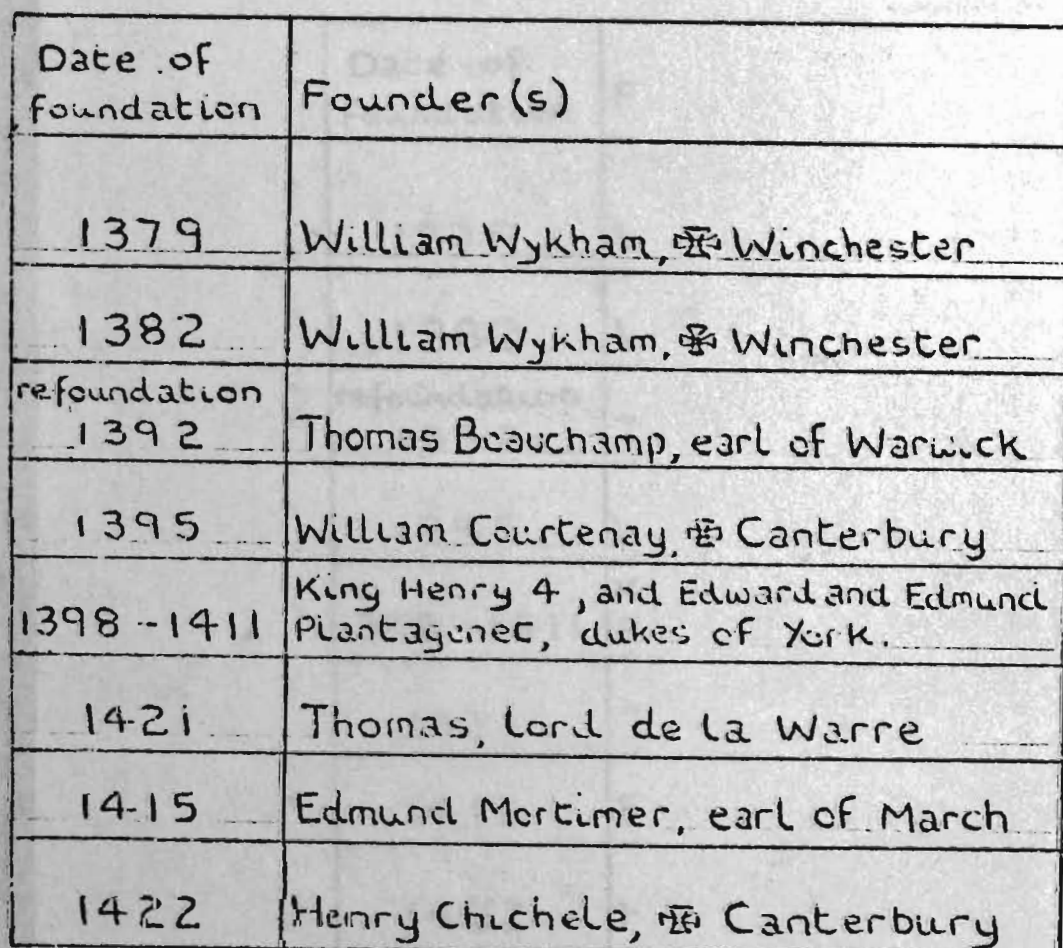 Date of foundation Founder(s)
1379 William Wykham, ✠ Winchester
1382 William Wykham, ✠ Winchester
refoundation
1392 Thomas Beauchamp, earl of Warwick
1395 William Courtenay, ✠ Canterbury
King Henry 4, and Edward and Edmund
1398--1411 Plantagenet, dukes of York.
1421 Thomas, Lord de la Warre
1415 Edmund Mortimer, earl of March
1422 Henry Chichele, ✠ Canterbury